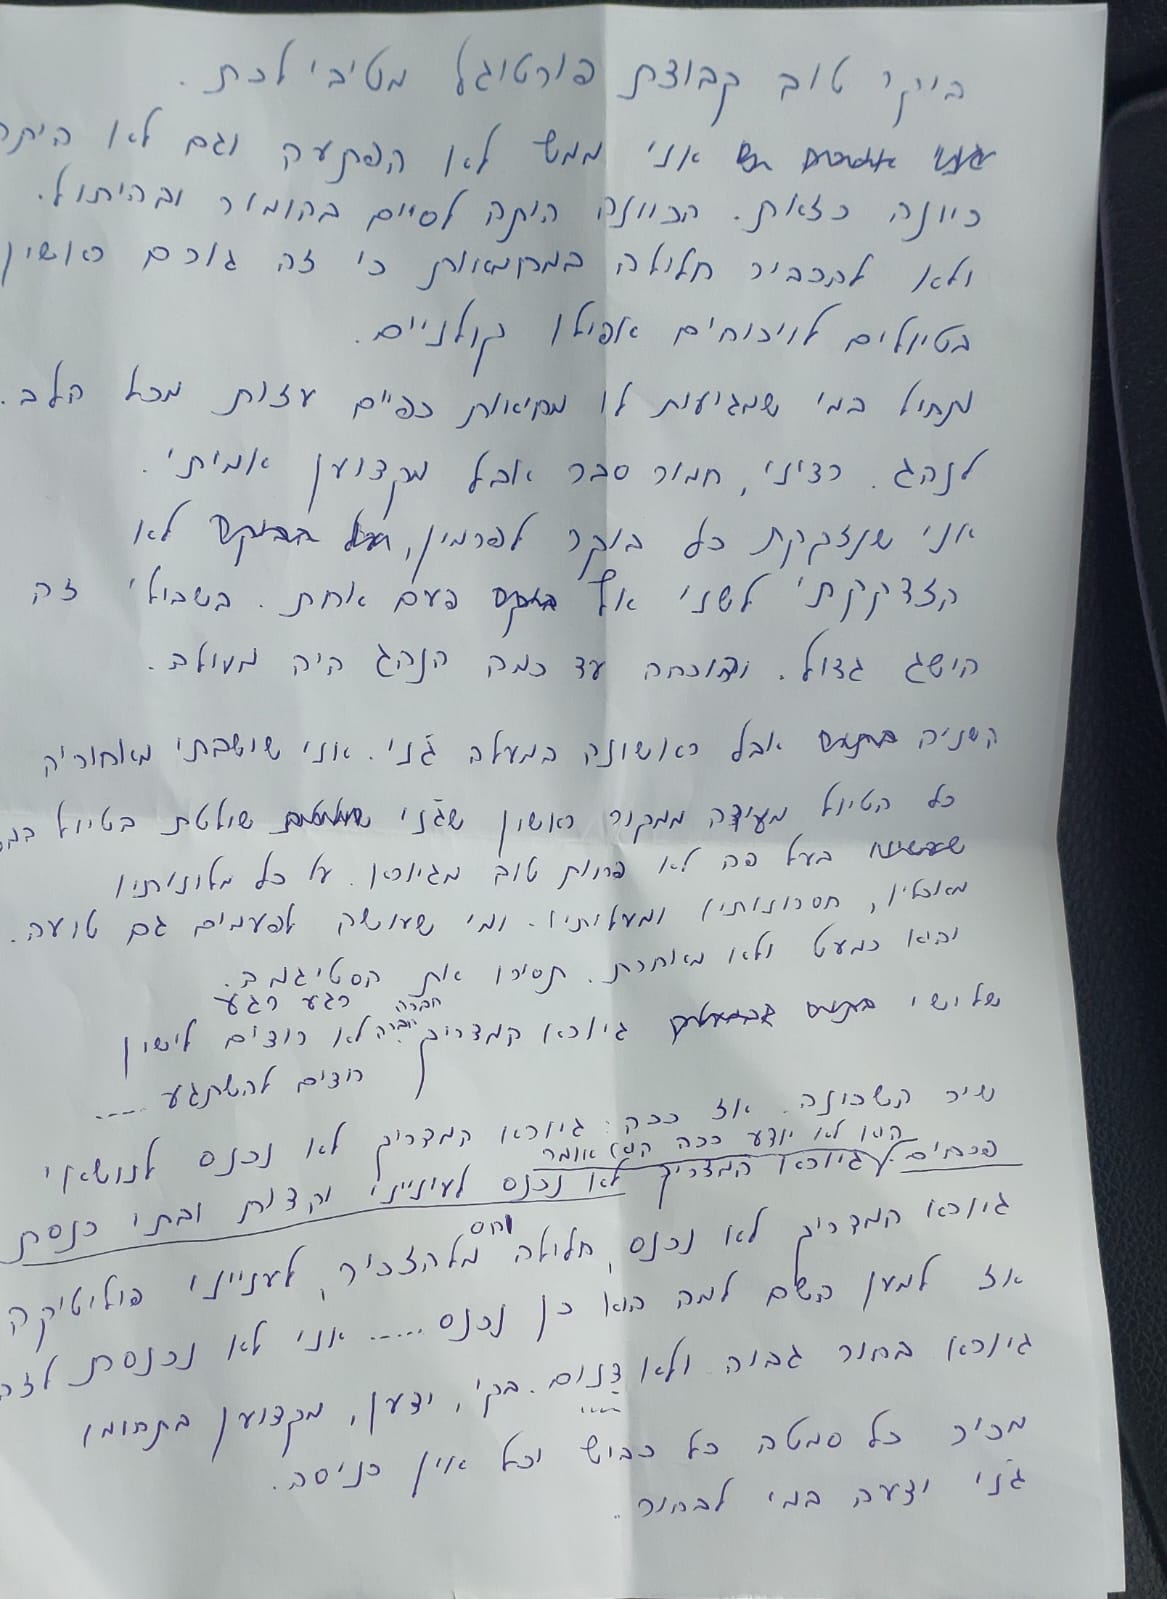 בוקר טוב קבוצת פורטוגל מטיבי לכת.
אני ממש לא הפתעה וגם לא היתה
כוונה כזאת. הכוונה היתה לסיים בהומור ובהיתול.
ולא להכביר חלילה במחמאות כי זה גורם ראשון
בטיולים לויכוחים אפילו קולניים.
נתחיל במי שמגיעות לו מחיאות כפיים עזות מכל הלב.
לנהג. רציני, חמור סבר אבל מקצוען אמיתי.
אני שנזקקת כל בוקר לפרמין, לא
הזדקקתי לשני אף פעם אחת. בשבילי זה
הישג גדול. והוכחה עד כמה הנהג היה מעולה.
השניה אבל ראשונה במעלה ג'ני. אני שישבתי מאחוריה
כל הטיול מעידה ממקור ראשון שג'ני שולטת בטיול
בעל פה לא פחות טוב מגיורא. על כל מלונותיו
מאכליו, חסרונותיו ומעלותיו. ומי שעושה לפעמים גם טועה.
והיא כמעט ולא מאחרת. תסירו את הסטיגמה.
חברה רגע רגע
שלישי גיורא המדריך חברה לא רוצים לישון
רוצים להשתגע .....
שיר השכונה. אז ככה: גיורא המדריך לא נכנס לנושאי
הוא לא יודע ככה הוא אומר
פרחים. גיורא המדריך לא נכנס לענייני הדת ובתי כנסת
גיורא המדריך לא נכנס, חלילה וחס מלהזכיר, לענייני פוליטיקה
אז למען השם למה הוא כן נכנס ..... אני לא נכנסת לזה
גיורא בחור גבוה ולא דנום. בקי, ידען, מקצוען בתחומו
מכיר כל סמטה כל כביש וכל אין כניסה.
ג'ני ידעה במי לבחור.